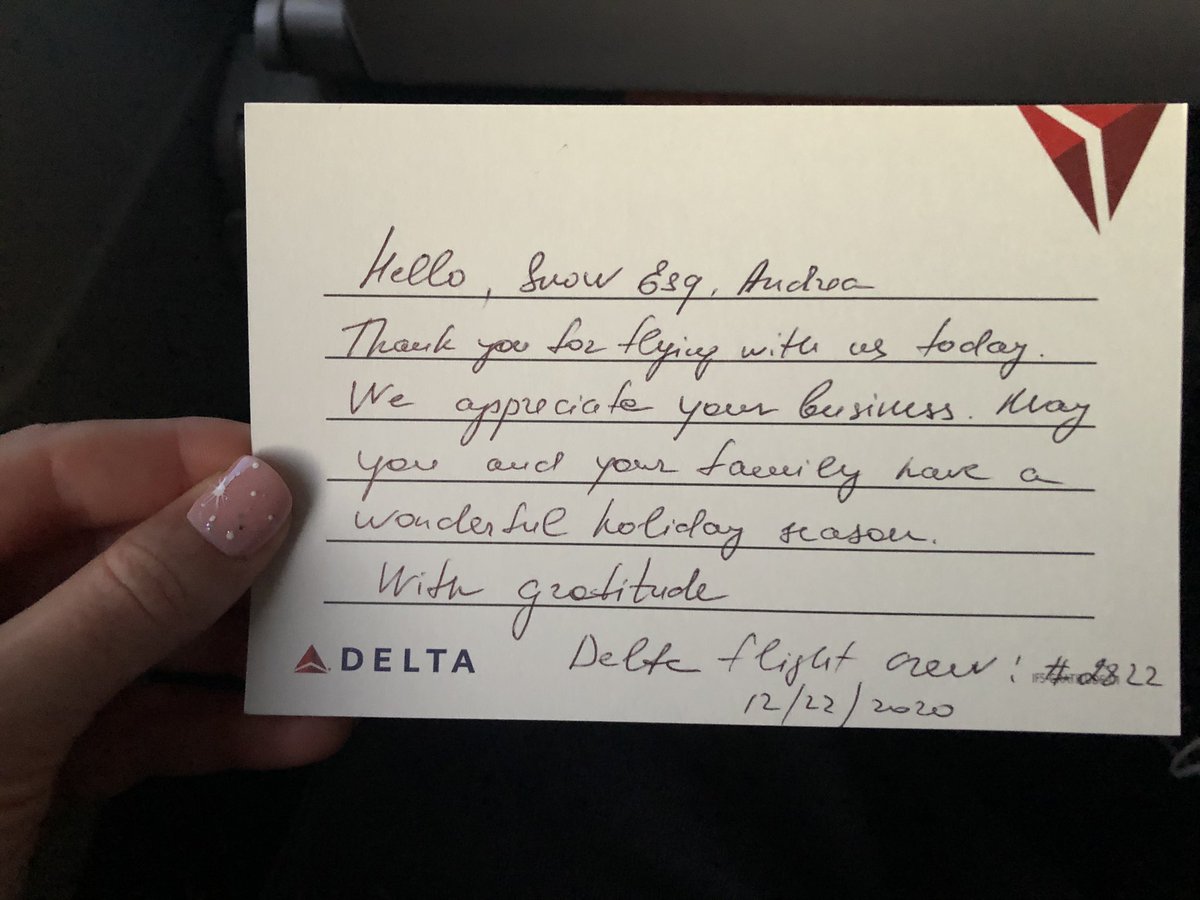 Hello, Snow Esq, Andrea
Thank you for flying with us today.
We appreciate your business. May
you and your family have a
wonderful holiday season.
With gratitude
DELTA
Delta flight crew: #2822
12/22/2020